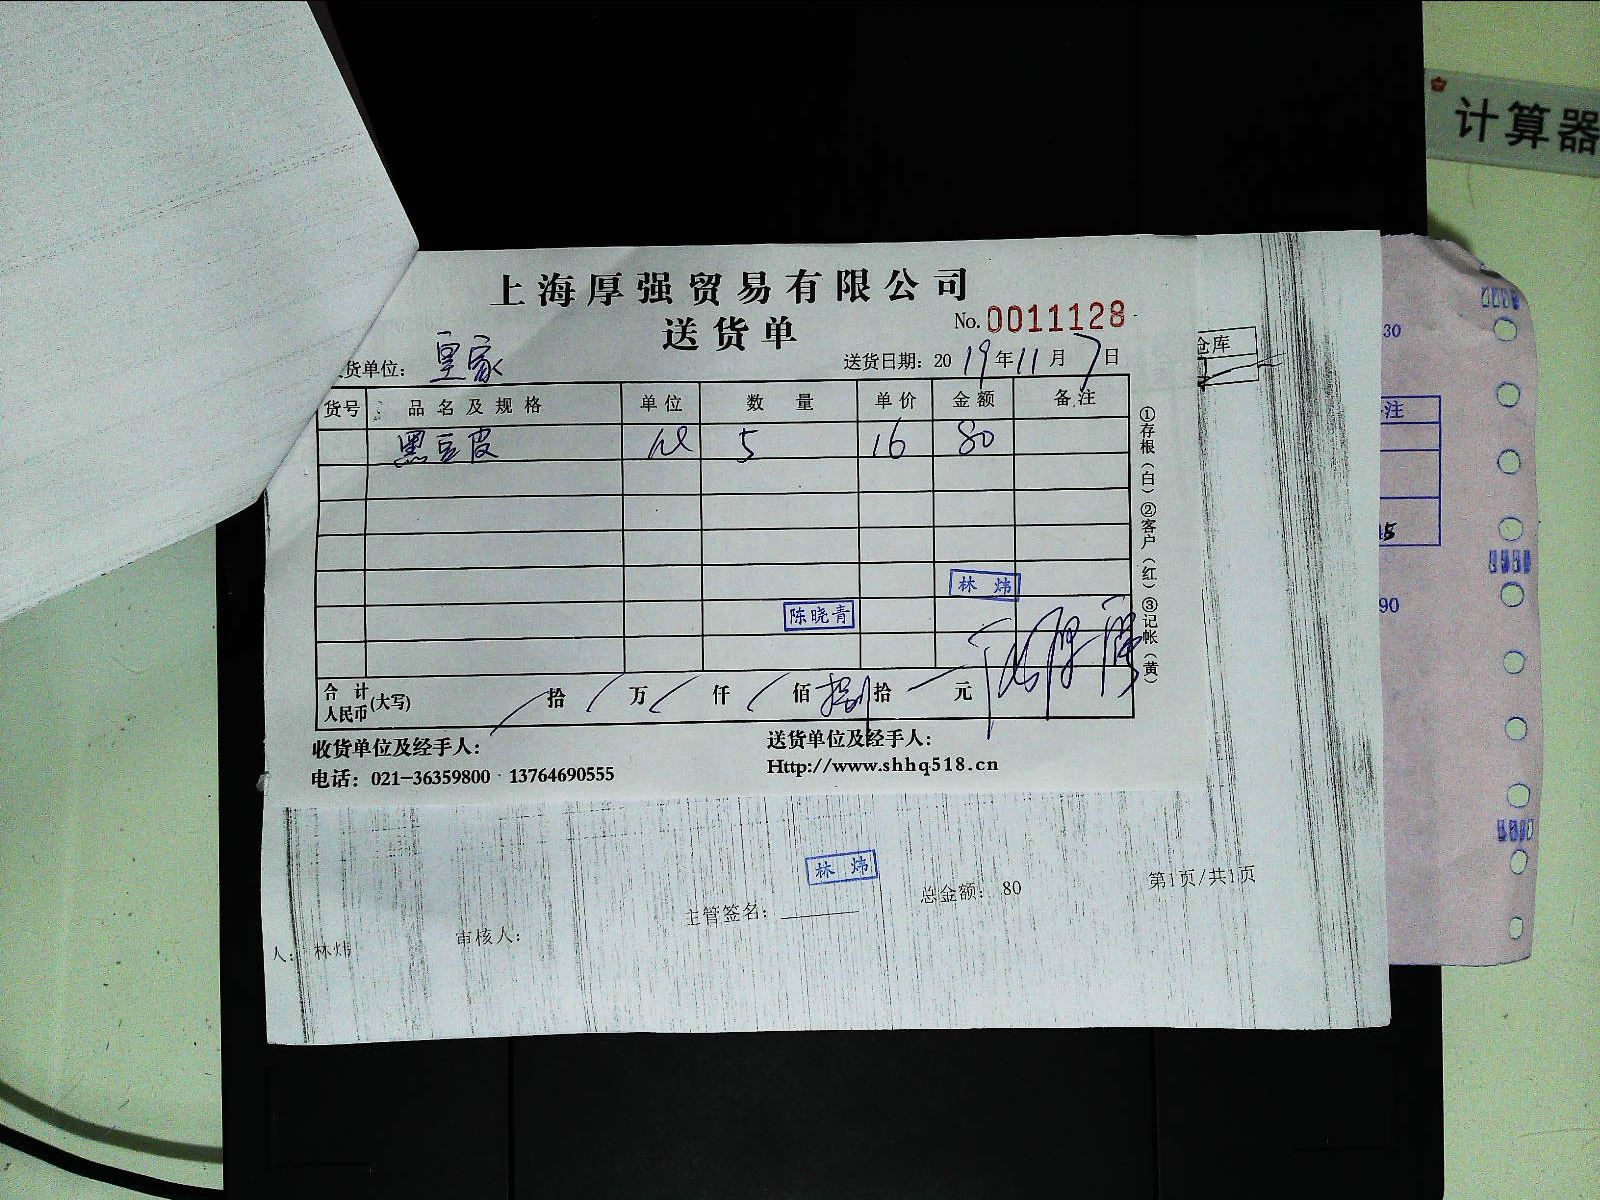 计算器
上海厚强贸易有限公司
送货单
No. 0011128
货单位: 皇家
送货日期: 2019年11月7日
货号 品名及规格 单位 数量 单价 金额 备注
黑豆皮 5 16 80
林炜
陈晓青
合计人民币(大写) 拾 万 仟 佰 捌拾 元
①存根(白)②客户(红)③记帐(黄)
收货单位及经手人:
送货单位及经手人:
电话: 021-36359800 13764690555
Http://www.shhq518.cn
仓库
30
注
15
90
林炜
人: 林炜
审核人:
主管签名:
总金额: 80
第1页/共1页